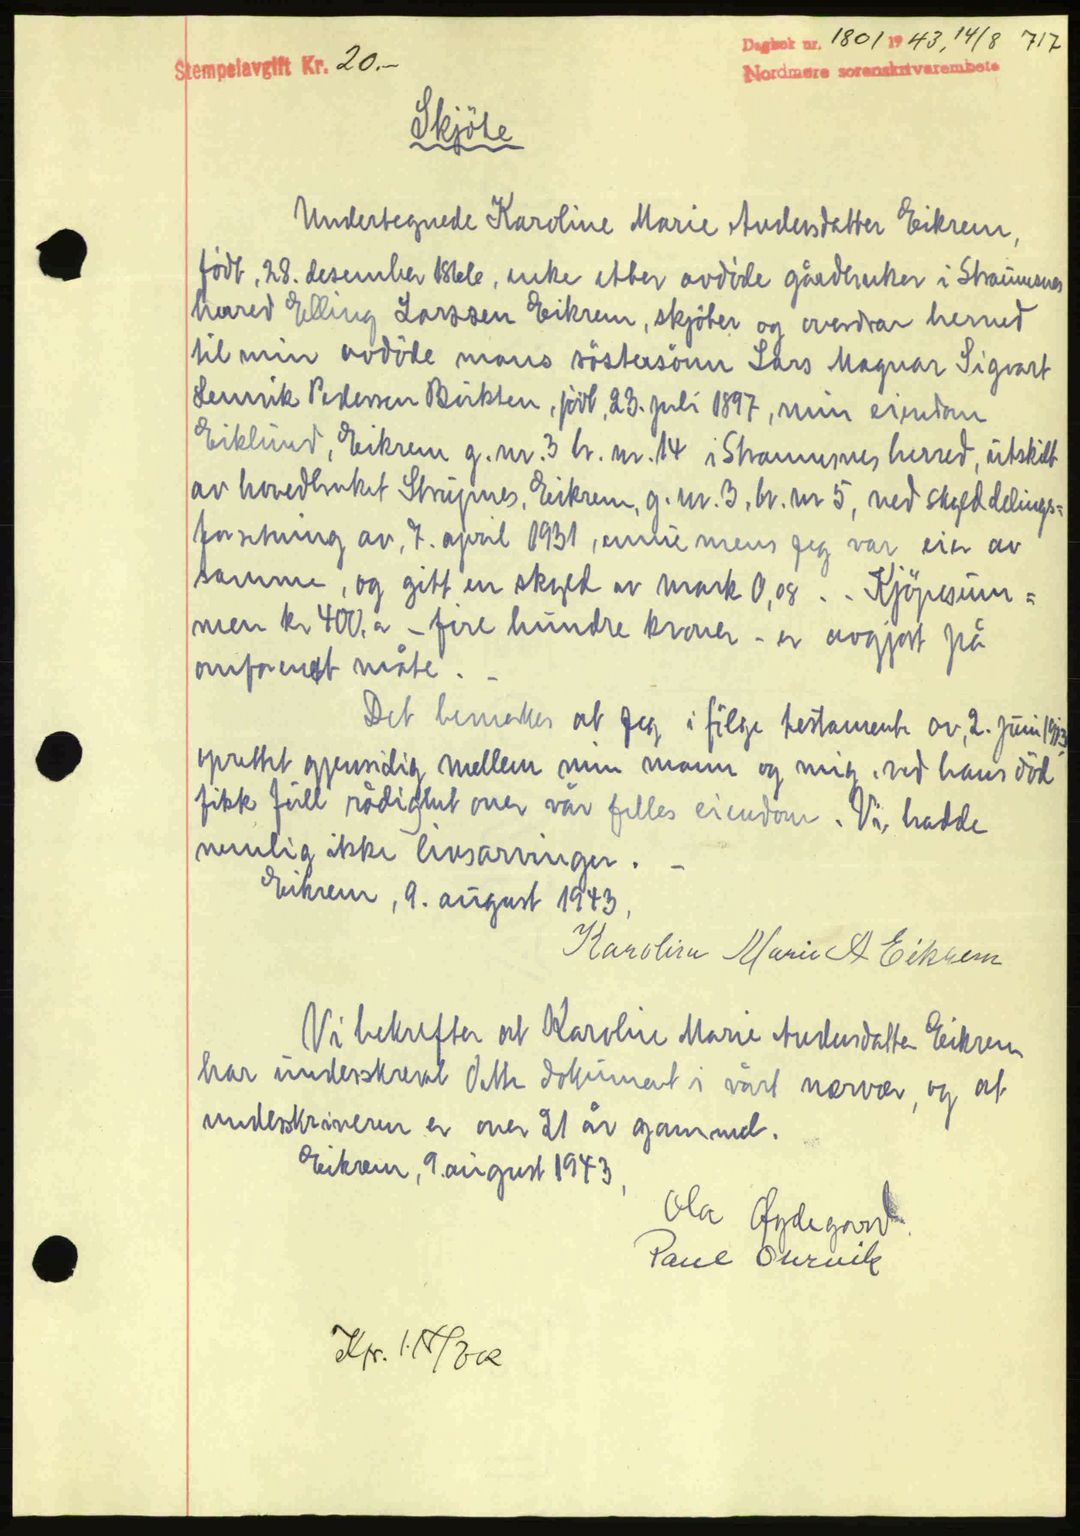 Stempelavgift Kr. 20.-
Dagbok nr. 1801 1943, 14/8 717
Nordmøre sorenskrivarembete
Skjöte
Undertegnede Karoline Marie Andersdatter Eikrem,
född, 28. desember 1866, enke etter avdöde gårdbruker i Straumsnes
herred Elling Larssen Eikrem, skjöter og overdrar herved
til min avdöde manns söstersönn Lars Magnar Sigvart
Henrik Pedersen Botten, född, 23. juli 1897, min eiendom
Eiklund, Eikrem g. nr. 3 br. nr. 14 i Straumsnes herred, utskilt
av hovedbruket Strupnes, Eikrem, g. nr. 3, br. nr 5, ved skylddelings=
forretning av, 7. april 1931, ennu mens jeg var eier av
samme, og gitt en skyld av mark 0,08 . - Kjöpesum=
men kr 400,- - fire hundre kroner - er avgjort på
omforenet måte. -
Det bemerkes at jeg i fölge testamente av, 2. juni 1913
oprettet gjensidig mellem min mann og mig, ved hans död
fikk full rådighet over vår felles eiendom. Vi, hadde
nemlig ikke livsarvinger. -
Eikrem, 9. august 1943,
Karoline Marie A Eikrem
Vi bekrefter at Karoline Marie Andersdatter Eikrem
har underskrevet dette dokument i vårt nærvær, og at
underskriveren er over 21 år gammel.
Eikrem, 9. august 1943,
Ola Øydegard
Paul Ourvik
Kr.